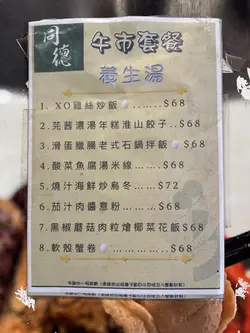 同德
午市套餐
養生湯
1. XO雞絲炒飯 ........$68
2. 芫茜濃湯年糕淮山餃子..$68
3. 滑蛋臘腸老式石鍋拌飯 ...$68
4. 酸菜魚腐湯米線 ........$68
5. 燒汁海鮮炒烏冬.......$72
6. 茄汁肉醬意粉 ........$68
7. 黑椒蘑菇肉粒燴椰菜花飯$68
8. 軟殼蟹卷 ........$68